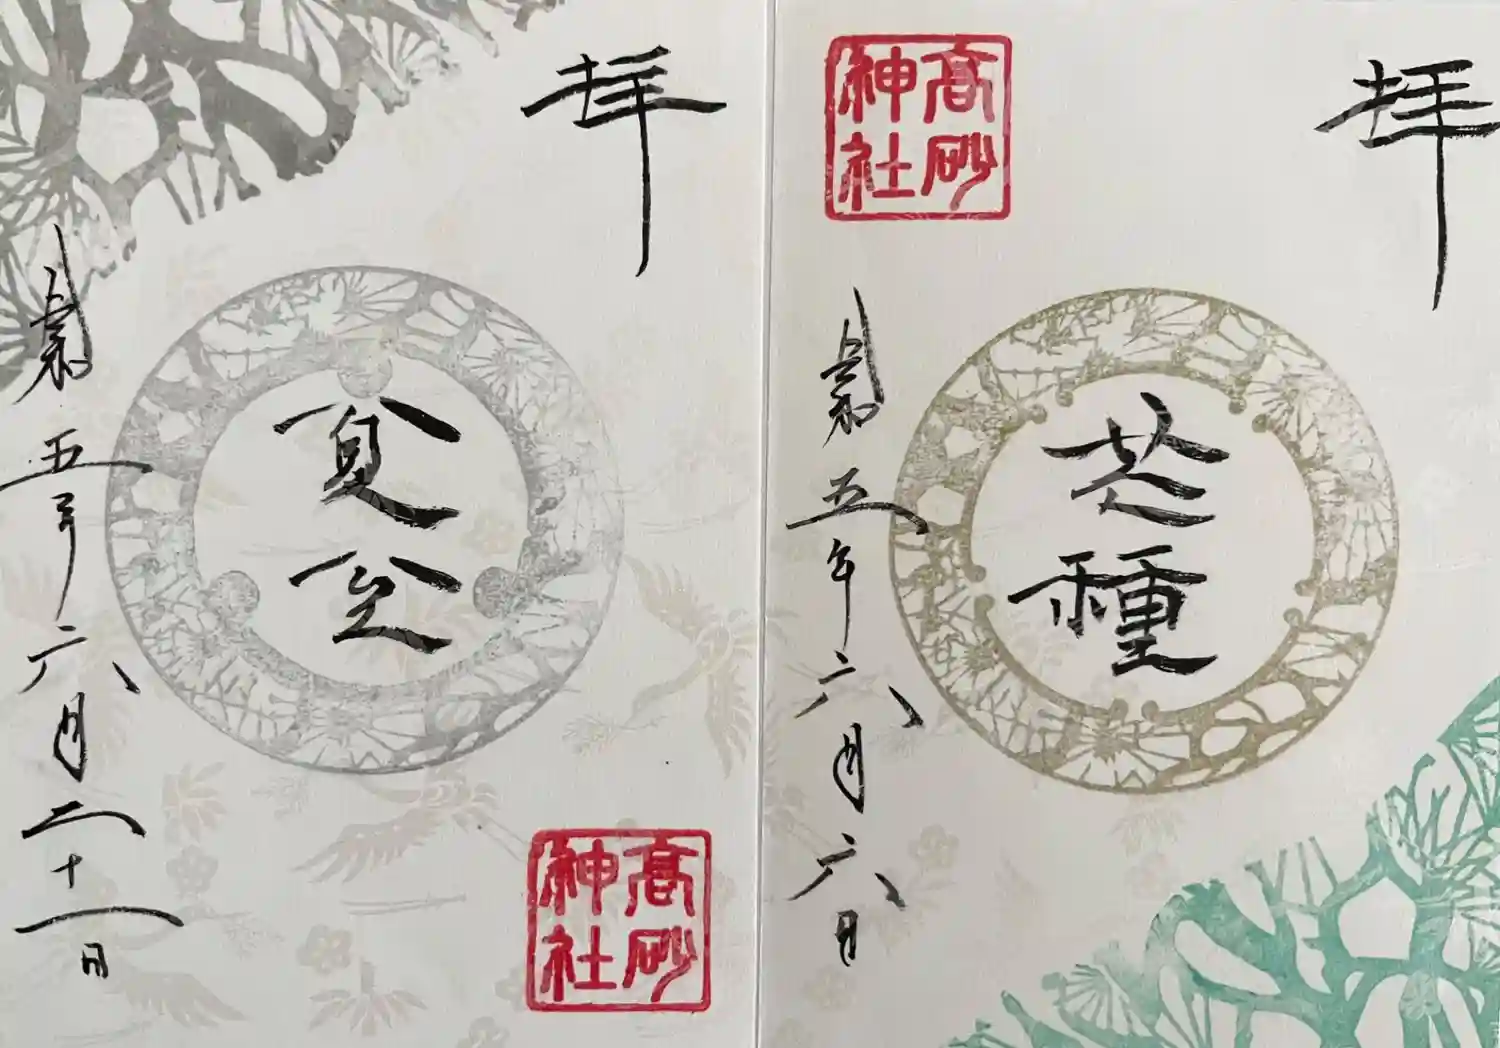 拝
高砂
神社
芒種
令和五年六月六日
拝
夏至
高砂
神社
令和五年六月二十一日